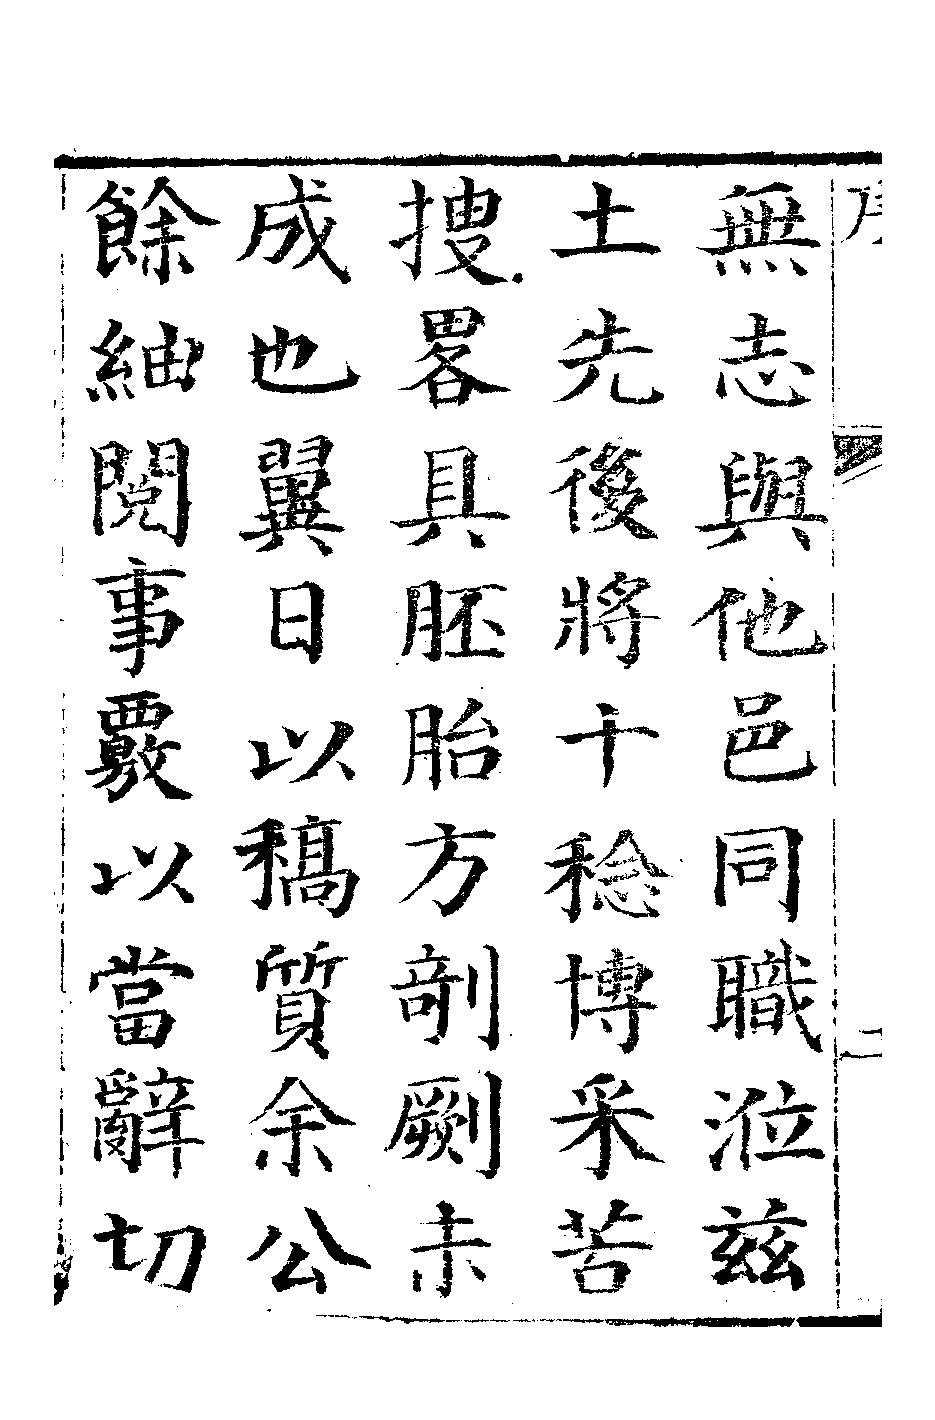 無志與他邑同職涖茲
土先後將十稔博采苦
搜畧具胚胎方剞劂未
成也翼日以稿質余公
餘紬閱事覈以當辭切
二